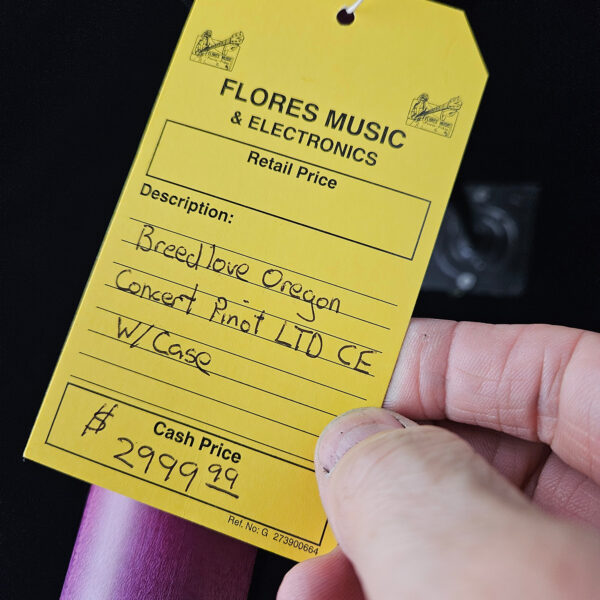 FLORES MUSIC
& ELECTRONICS
Retail Price
Description:
Breedlove Oregon
Concert Pinot LTD CE
W/ Case
Cash Price
$ 2999 99
Ref. No: G 273900664